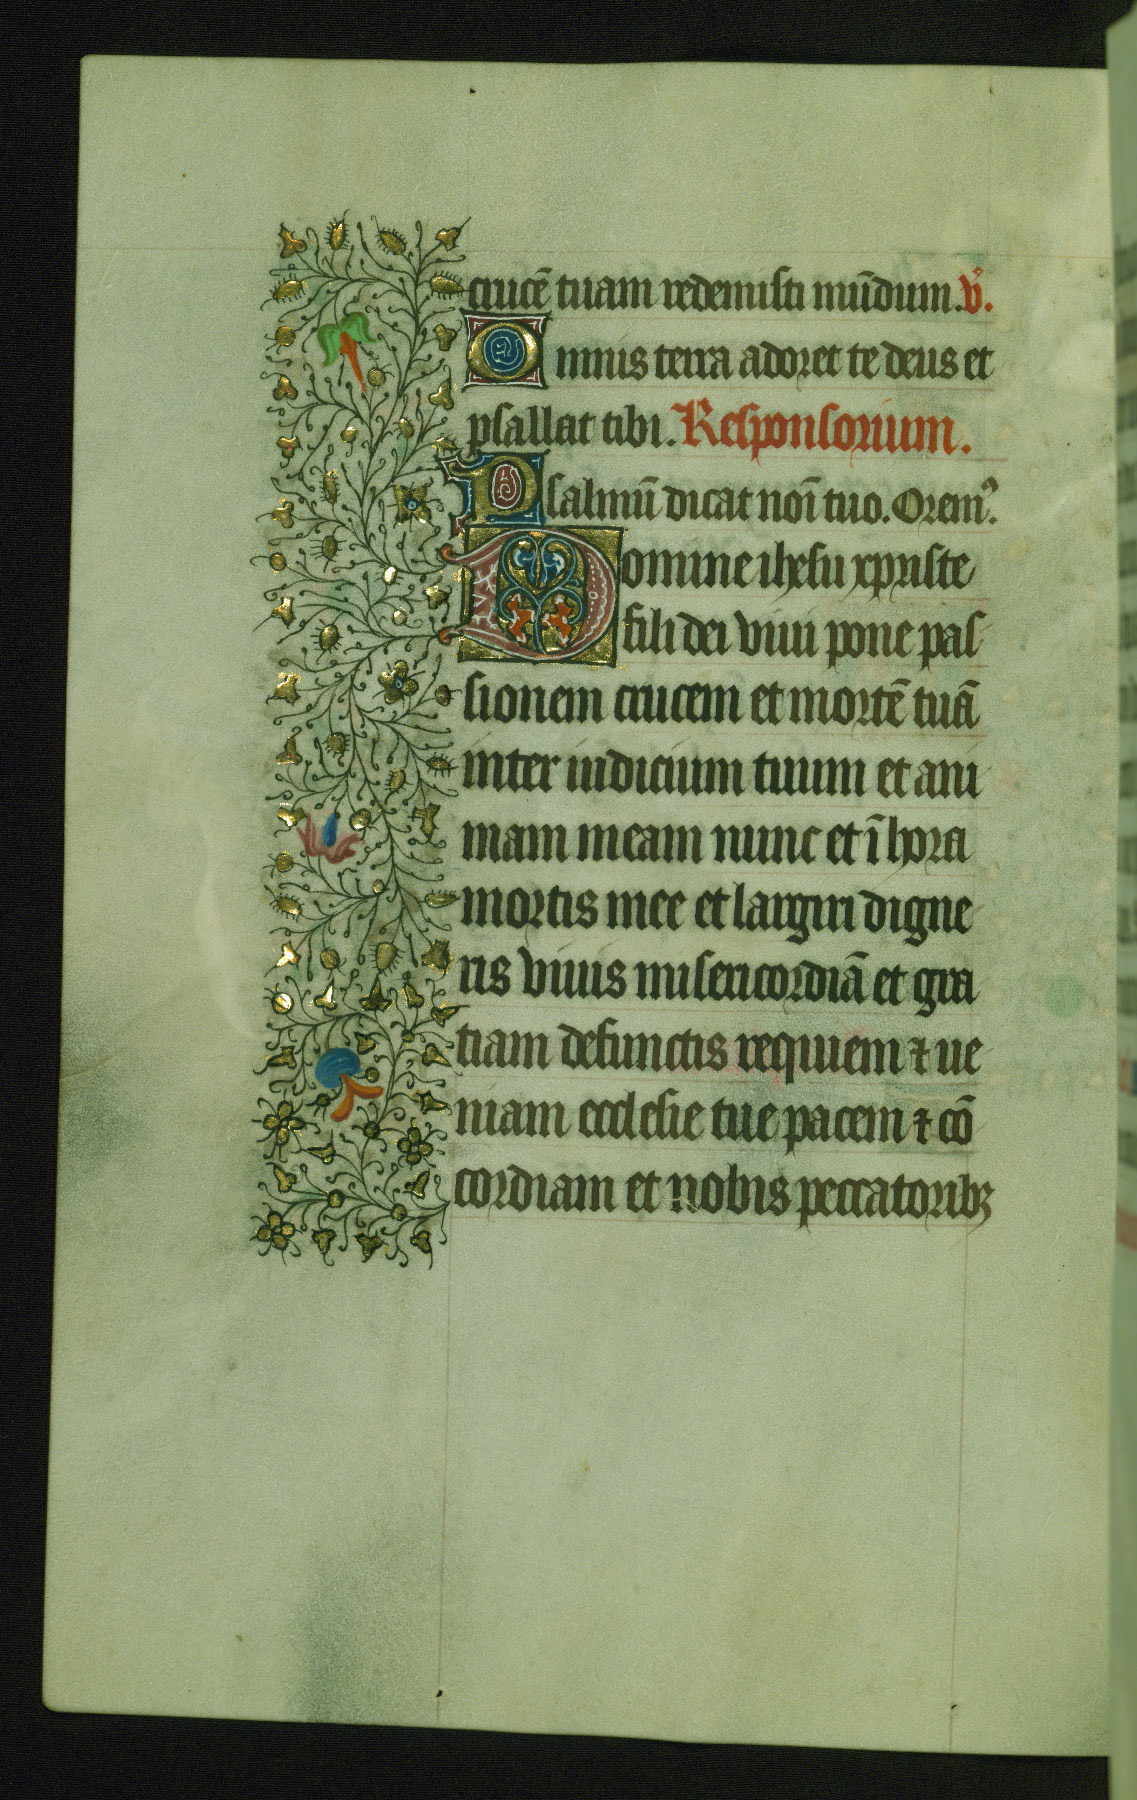 crucē tuam redemisti mūdum. v̓.
Omnis terra adoret te deus et
psallat tibi. Responsorium.
Psalmū dicat noī tuo. Orem᾿.
Domine ihesu xpriste
fili dei viui pone pas
sionem crucem et mortē tuā
inter iudicium tuum et ani
mam meam nunc et ī hora
mortis mee et largiri digne
ris viuis misericordiā et gra
tiam defunctis requiem ⁊ ue
niam ecclesie tue pacem ⁊ cō
cordiam et nobis peccatoribꝫ